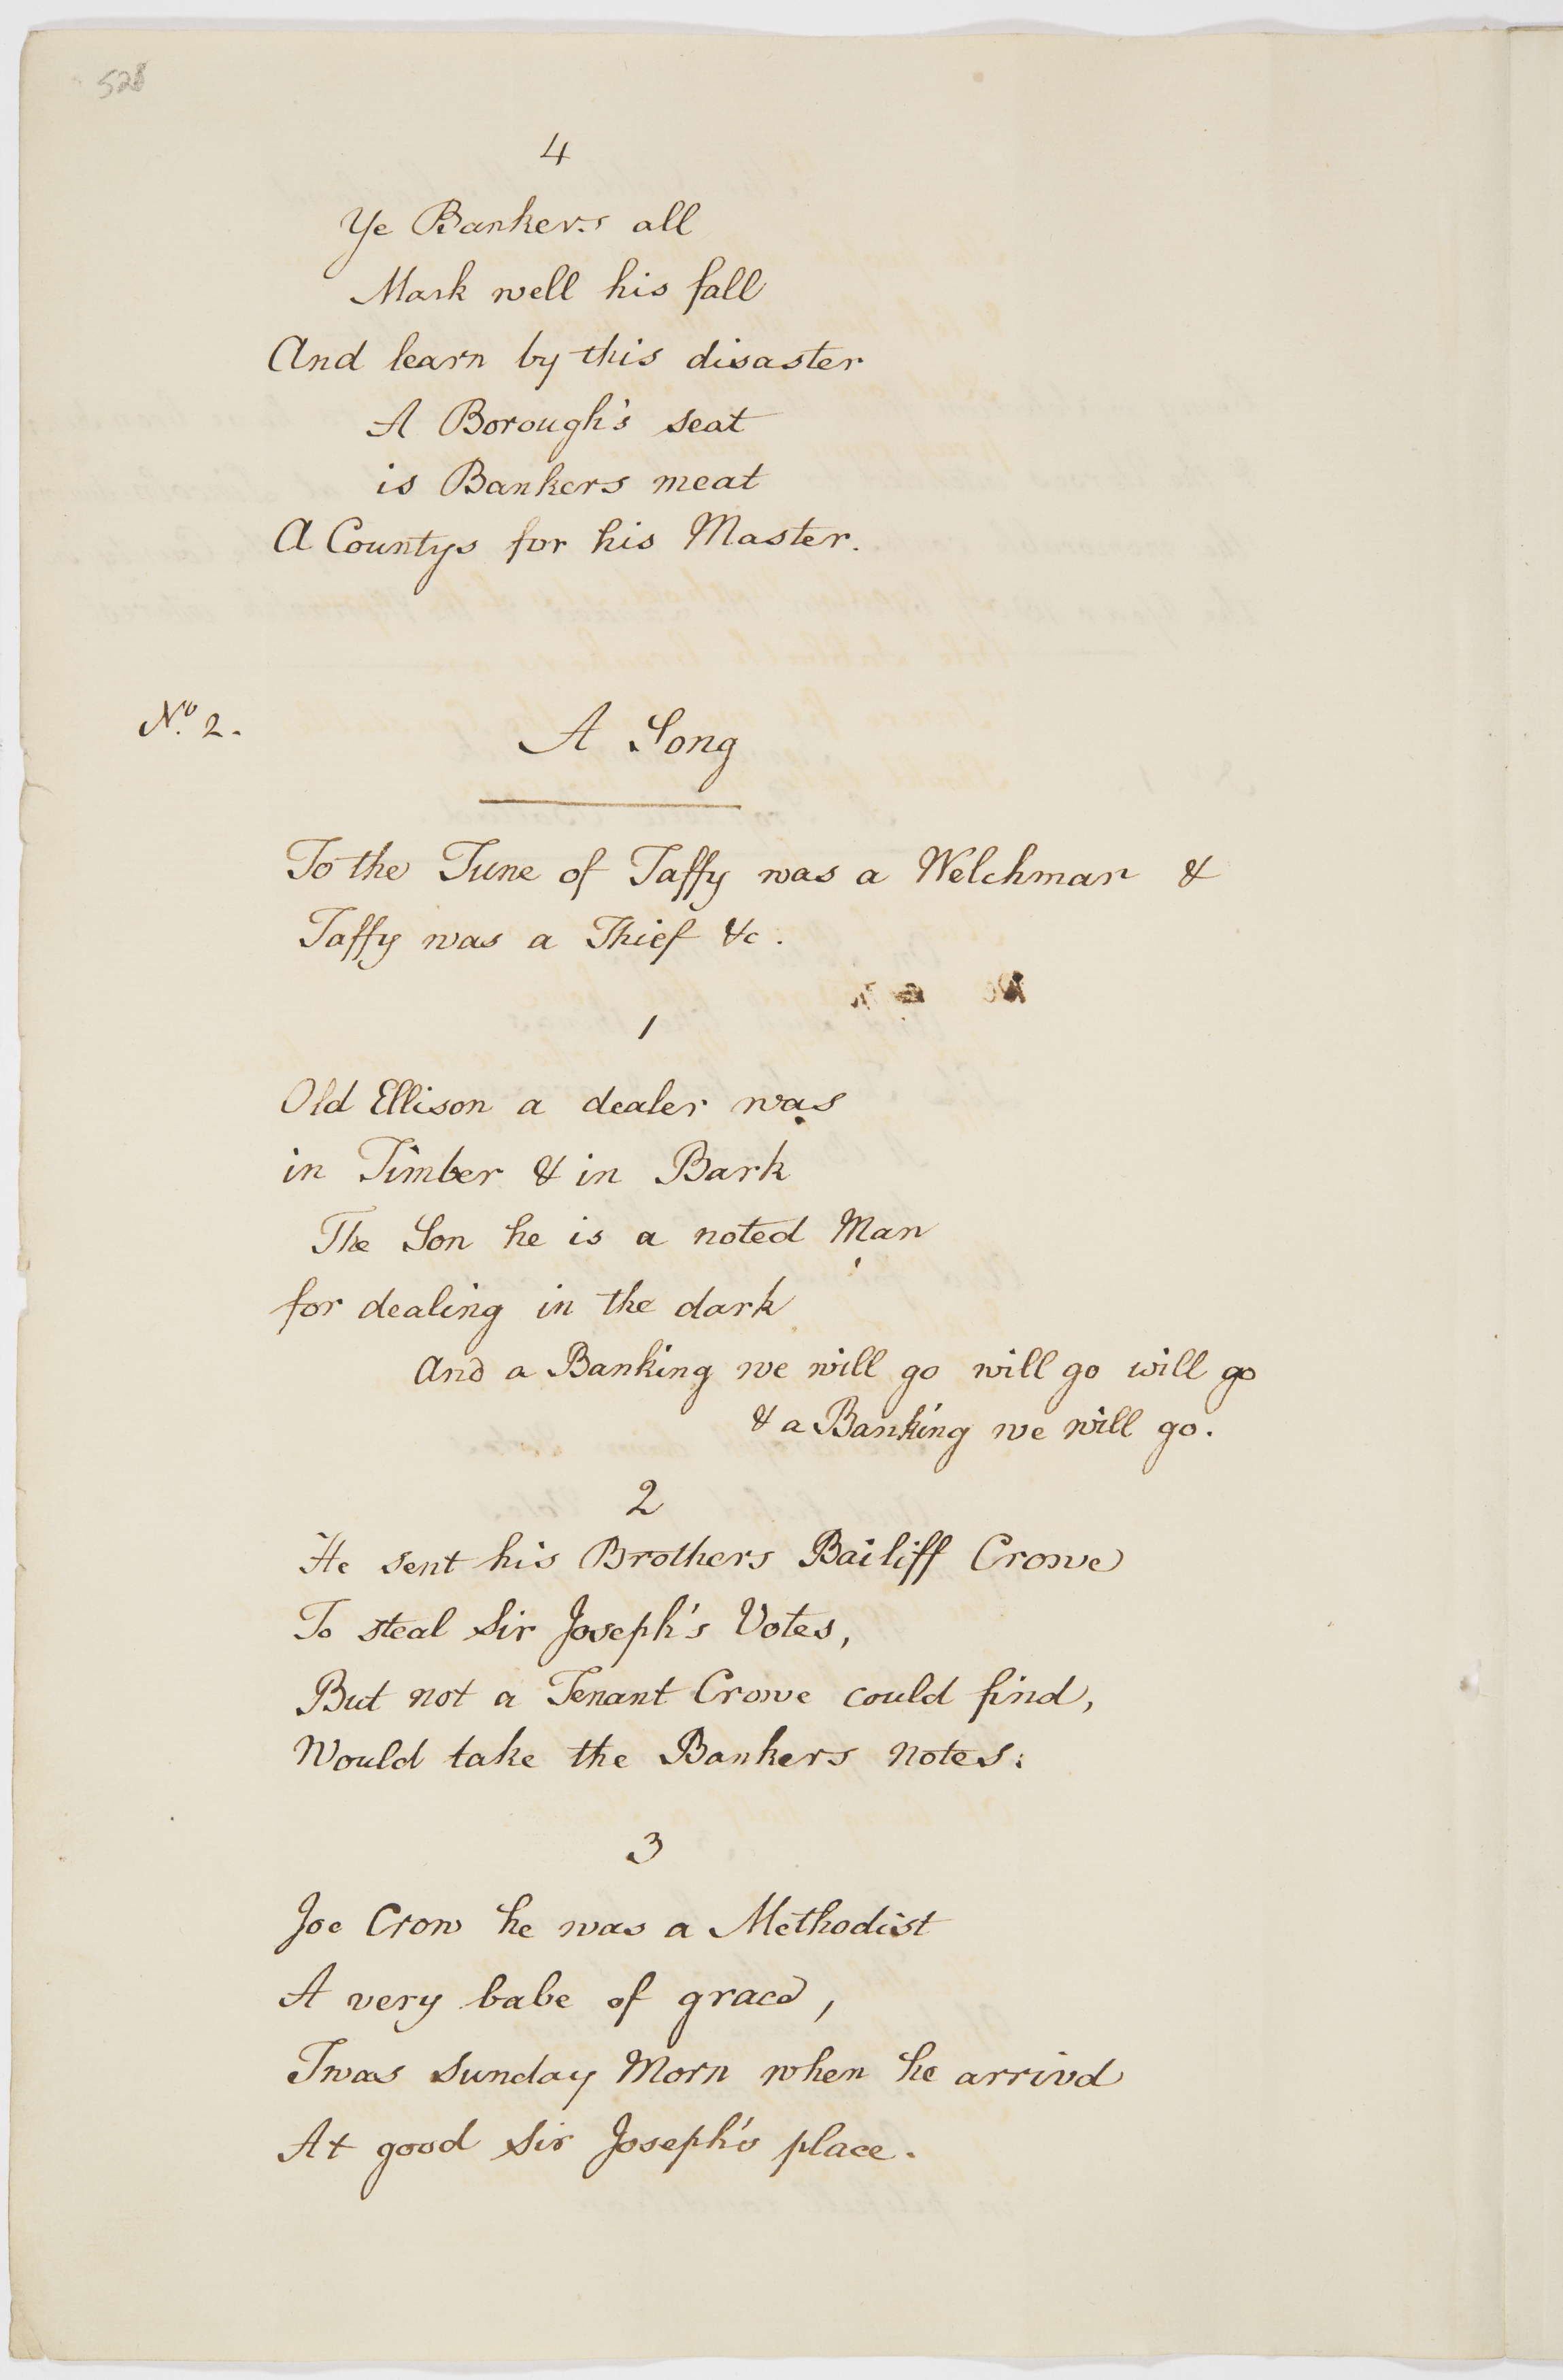 528
4
Ye Bankers all
Mark well his fall
And learn by this disaster
A Borough's seat
is Bankers meat
A Countys for his Master.
No. 2.
A Song
To the Tune of Taffy was a Welchman &
Taffy was a Thief &c.
1
Old Ellison a dealer was
in Timber & in Bark
The Son he is a noted Man
for dealing in the dark
And a Banking we will go will go will go
& a Banking we will go.
2
He sent his Brothers Bailiff Crowe
To steal Sir Joseph's Votes,
But not a Tenant Crowe could find,
Would take the Bankers Notes:
3
Joe Crow he was a Methodist
A very babe of grace,
Twas Sunday Morn when he arrivd
At good Sir Joseph's place.